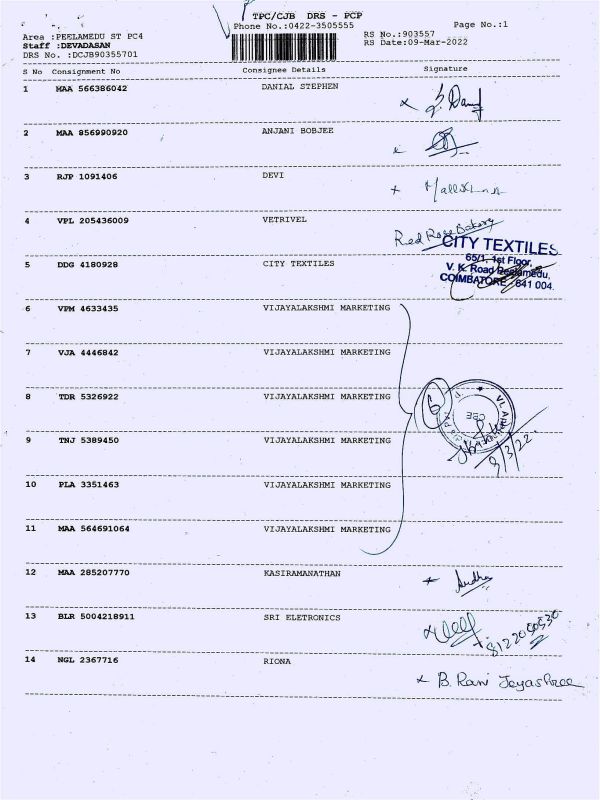 TPC/CJB DRS - PCP
Phone No.:0422-3505555 Page No.:1
Area :PEELAMEDU ST PC4 RS No.:903557
Staff :DEVADASAN RS Date:09-Mar-2022
DRS No. :DCJB90355701
S No Consignment No Consignee Details Signature
1 MAA 566386042 DANIAL STEPHEN
2 MAA 856990920 ANJANI BOBJEE
3 RJP 1091406 DEVI
4 VPL 205436009 VETRIVEL
Red Rose Bakery
CITY TEXTILES
65/1, 1st Floor,
5 DDG 4180928 CITY TEXTILES V. K. Road Peelamedu,
COIMBATORE - 641 004.
6 VPM 4633435 VIJAYALAKSHMI MARKETING
7 VJA 4446842 VIJAYALAKSHMI MARKETING
8 TDR 5326922 VIJAYALAKSHMI MARKETING
6
CBE
9 TNJ 5389450 VIJAYALAKSHMI MARKETING
9/3/22.
10 PLA 3351463 VIJAYALAKSHMI MARKETING
11 MAA 564691064 VIJAYALAKSHMI MARKETING
12 MAA 285207770 KASIRAMANATHAN
13 BLR 5004218911 SRI ELETRONICS
14 NGL 2367716 RIONA
B. Rani Jeyashree